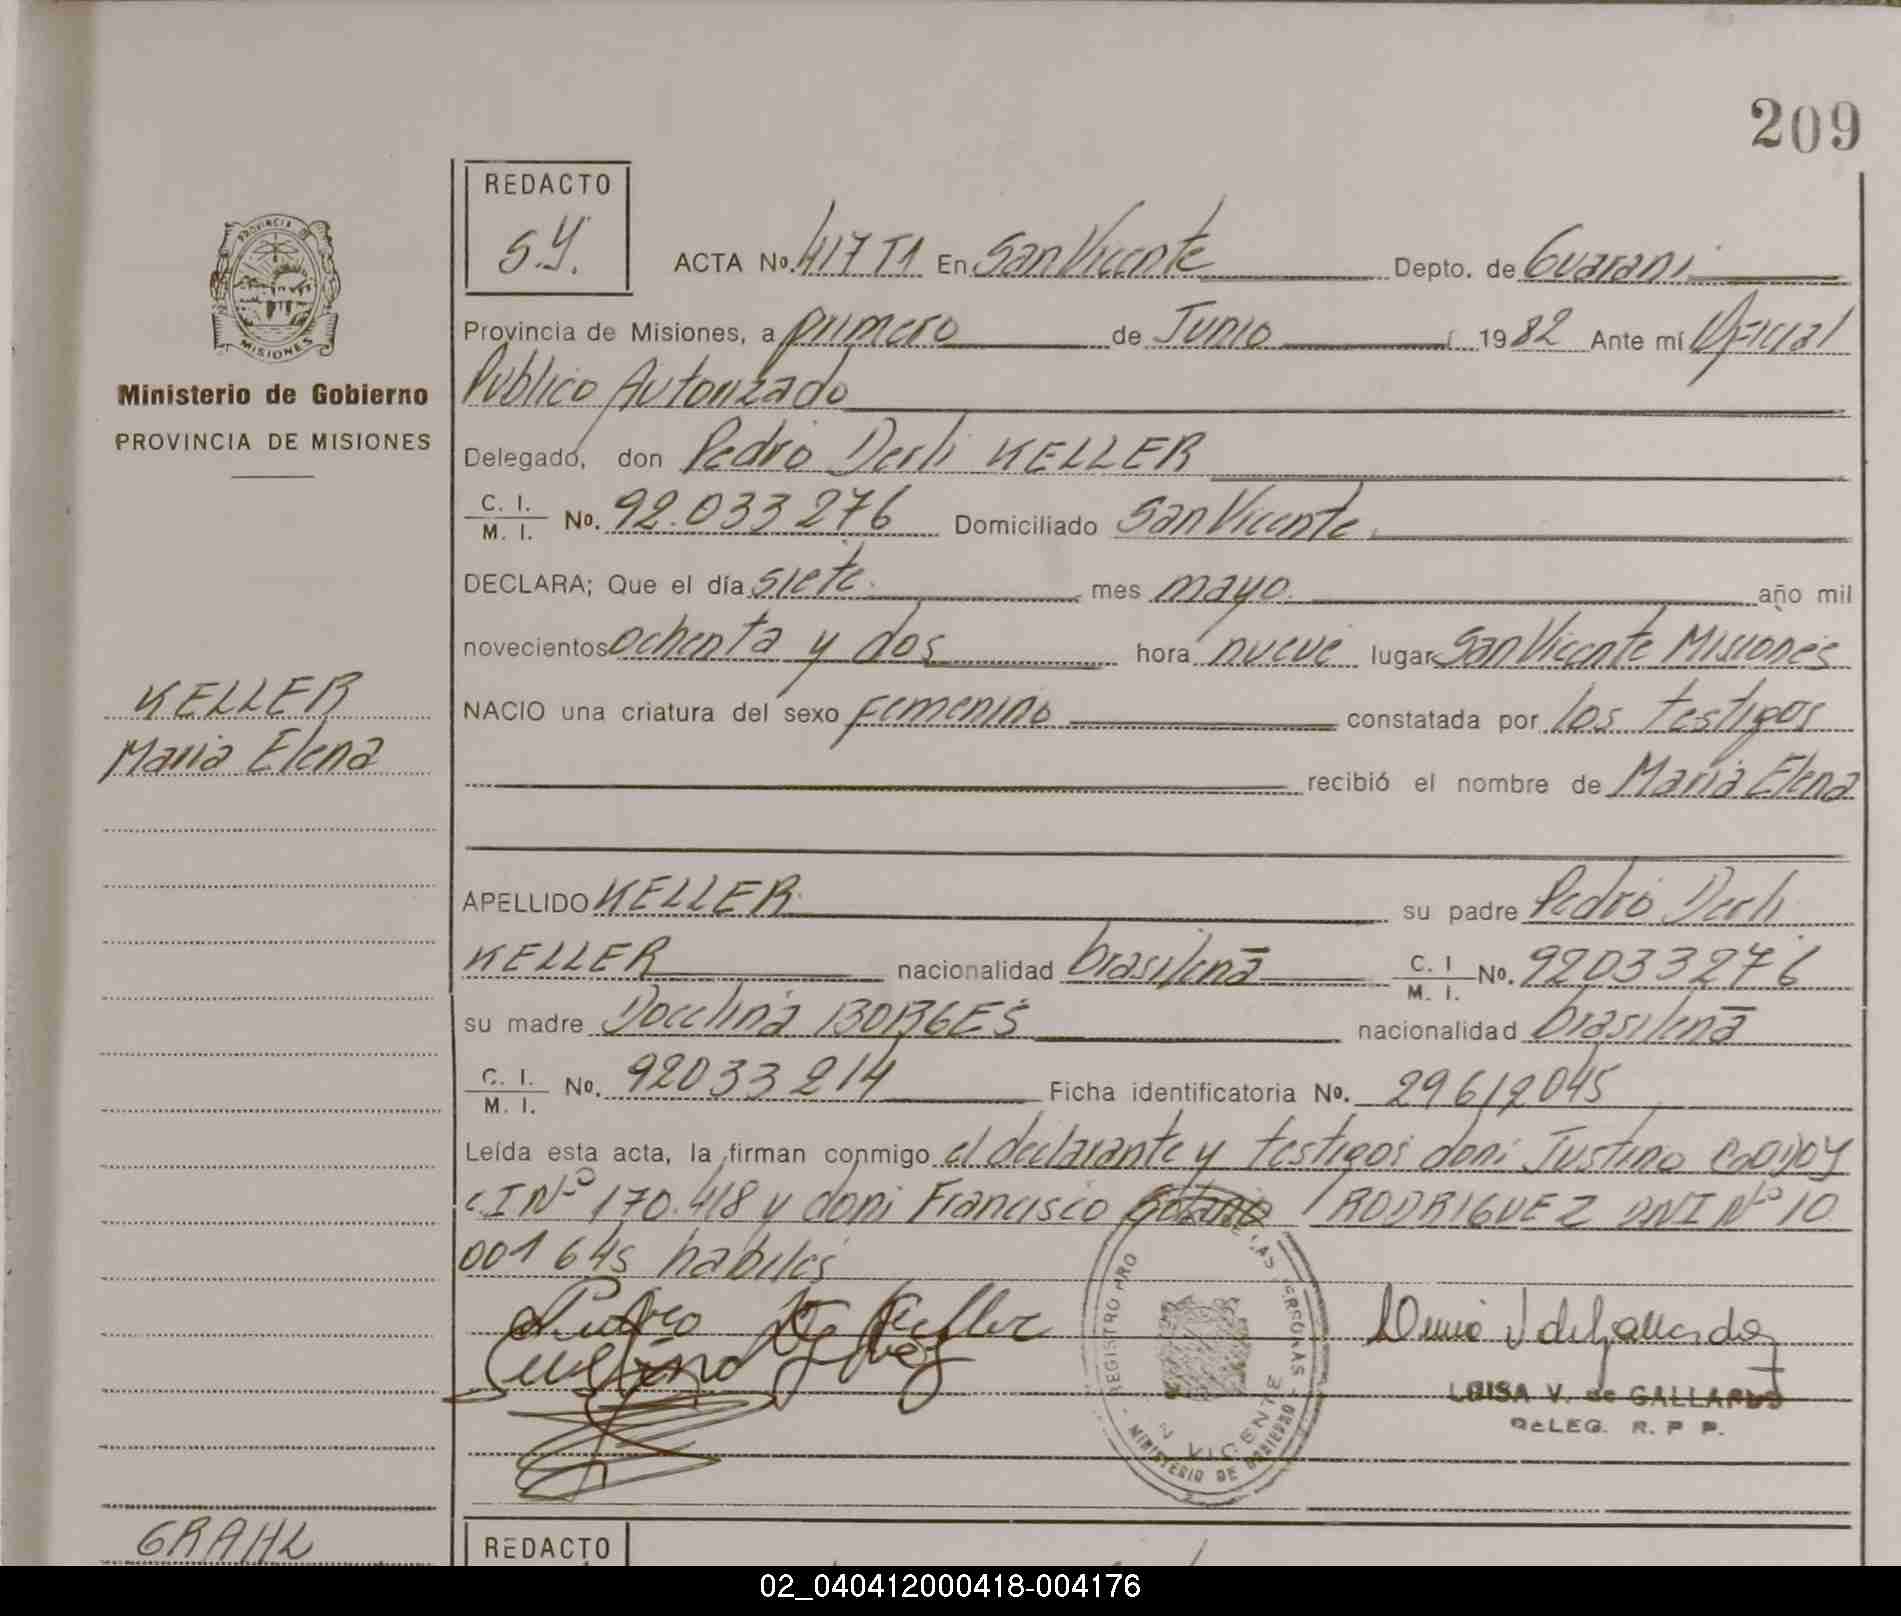 209
REDACTO
S.Y.
ACTA No. 417 T1 En San Vicente Depto. de Guarani
PROVINCIA DE
MISIONES
Provincia de Misiones, a primero de Junio 1982 Ante mí Oficial
Ministerio de Gobierno
Publico Autorizado
PROVINCIA DE MISIONES
Delegado, don Pedro Derli KELLER
C. I.
M. I. No. 92.033276 Domiciliado San Vicente
DECLARA; Que el día siete mes mayo año mil
novecientos ochenta y dos hora nueve lugar San Vicente Misiones
KELLER
NACIO una criatura del sexo femenino constatada por los testigos
Maria Elena
recibió el nombre de Maria Elena
APELLIDO KELLER su padre Pedro Derli
KELLER nacionalidad brasilena C. I
M. I. No. 92033276
su madre BORGES nacionalidad brasilena
C. I.
M. I. No. 92033214 Ficha identificatoria No. 29612045
Leída esta acta, la firman conmigo el declarante y testigos don: Justino
CI Nº 170.418 y don: Francisco RODRIGUEZ DNI Nº 10
001 645 habiles
Pedro D Keller
REGISTRO PRO DE LAS PERSONAS
N VICENTE
MINISTERIO DE GOBIERNO
LUISA V. de GALLARDO
DELEG. R. P P.
GRAHL
REDACTO
02_040412000418-004176